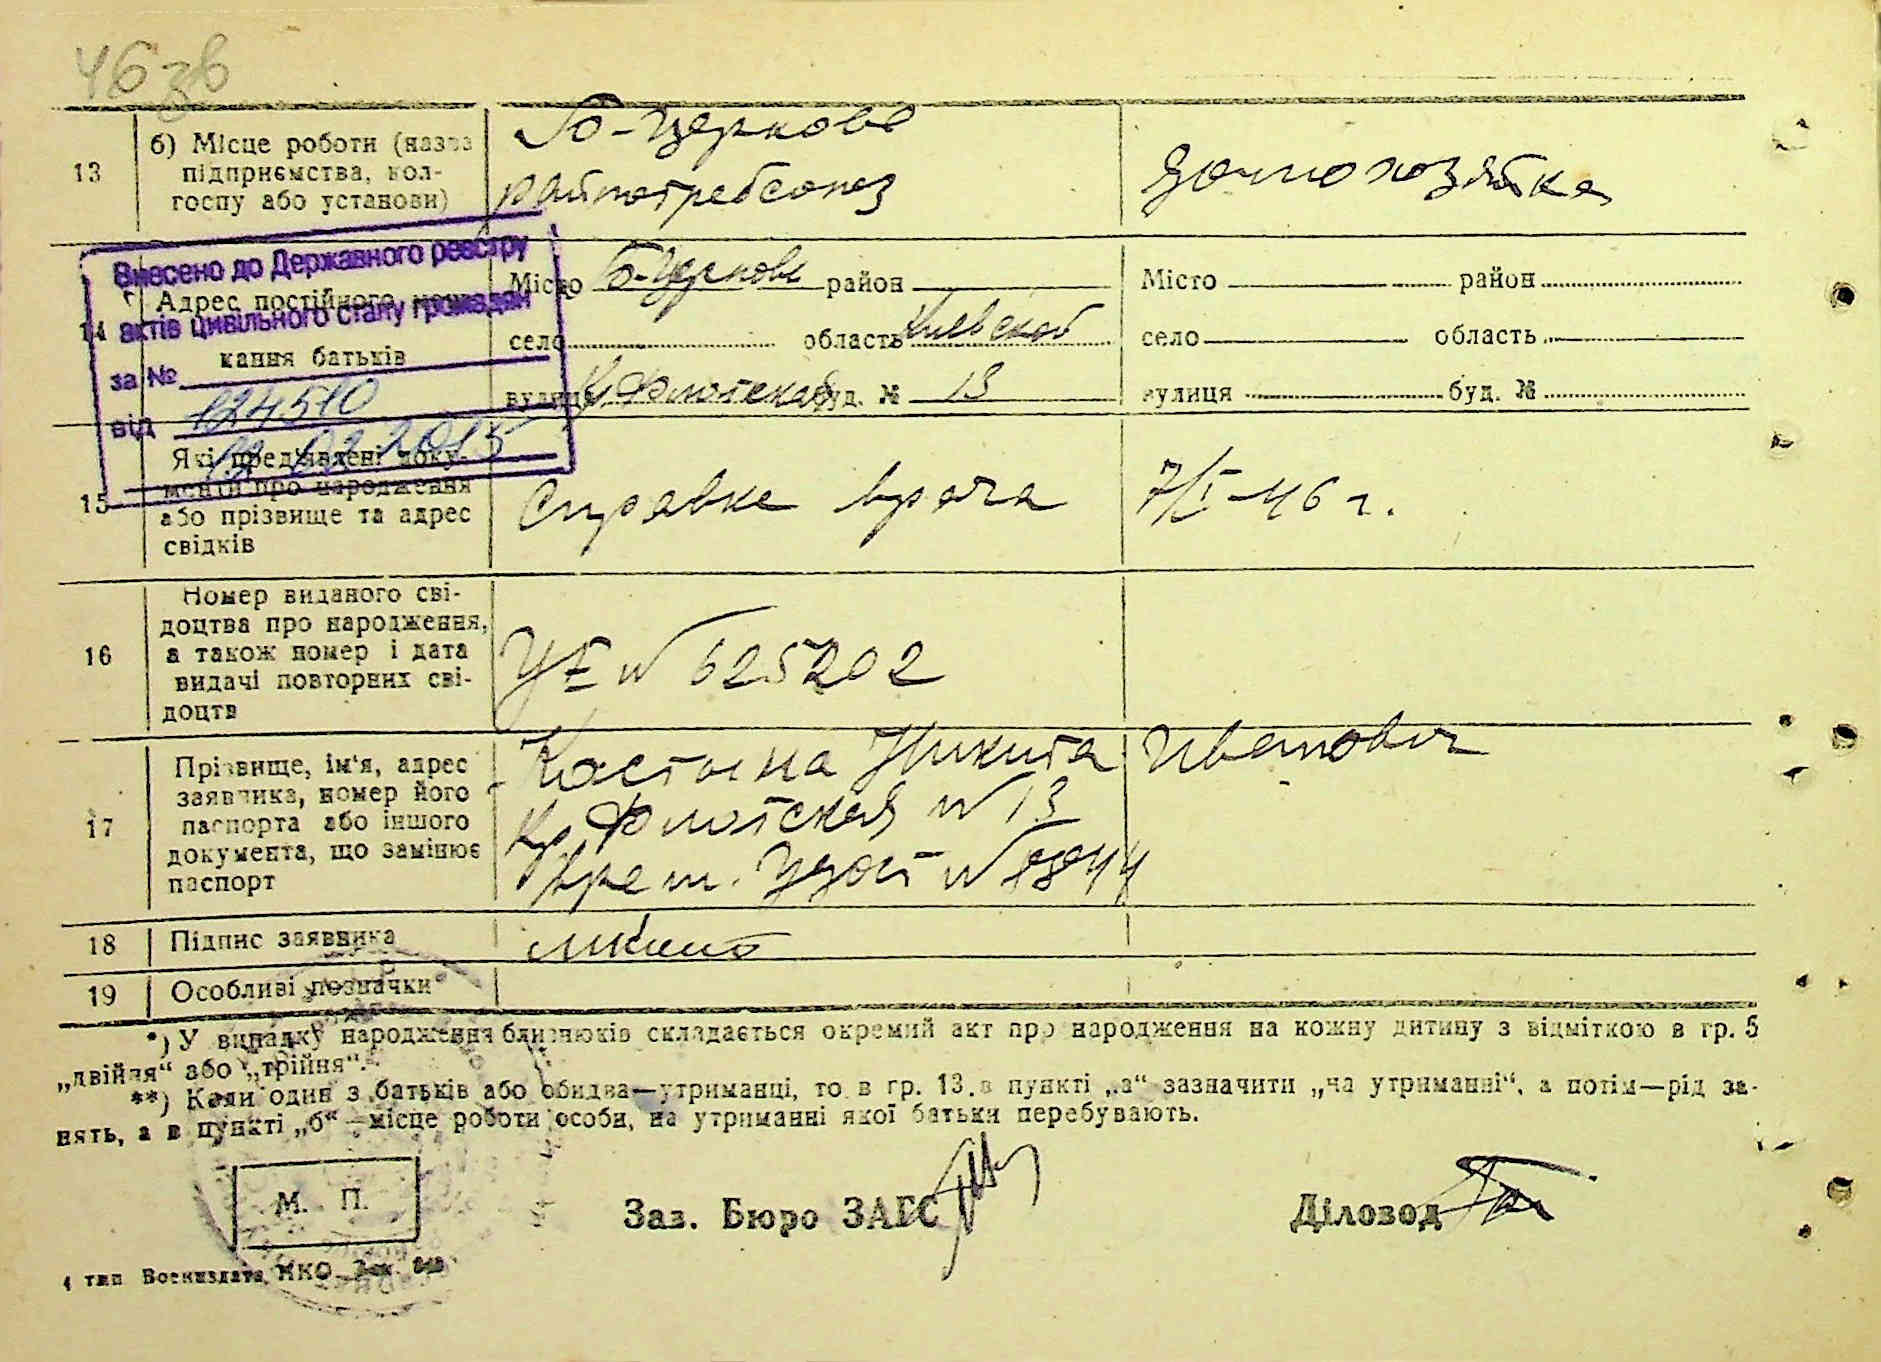 46 зв
13
б) Місце роботи (назва
підприємства, кол-
госпу або установи)
Б-Церковс
райпотребсоюз
домохозяйка
Внесено до Державного реєстру
актів цивільного стану громадян
за №
124510
від
02 2015
14
Адрес постійного
кання батьків
Місто Б-Церковь район
село область Киевской
вулиця Кр. Флотская буд. № 13
Місто район
село область
вулиця буд. №
15
Які пред'явлені доку-
менти про народження
або прізвище та адрес
свідків
Справка врача
7/I-46 г.
16
Номер виданого сві-
доцтва про народження,
а також номер і дата
видачі повторних сві-
доцтв
УЕ № 625202
17
Прізвище, ім'я, адрес
заявника, номер його
паспорта або іншого
документа, що замінює
паспорт
Никита Иванович
Кр Флотская № 13
Врем. Удост №
18
Підпис заявника
19
Особливі позначки
*) У випадку народження близнюків складається окремий акт про народження на кожну дитину з відміткою в гр. 5
„двійня“ або „трійня“.
**) Коли один з батьків або обидва—утриманці, то в гр. 13 в пункті „а“ зазначити „на утриманні“, а потім—рід за-
нять, а в пункті „б“—місце роботи особи, на утриманні якої батьки перебувають.
М. П.
Зав. Бюро ЗАГС
Діловод
тип Воениздата НКО Зак.